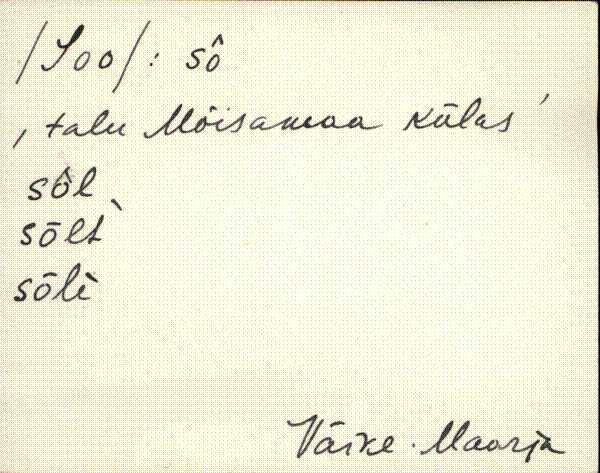 /Soo/: sô
, talu Mõisamaa külas '
sôl
sōlt`
sōlè
Väike-Maarja